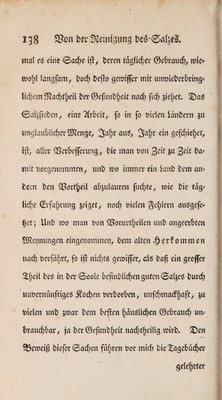 138 Von der Reinigung des Salzes.
mal es eine Sache ist, deren täglicher Gebrauch, wie-
wohl langsam, doch desto gewisser mit unwiederbring-
lichem Nachtheil der Gesundheit nach sich ziehet. Das
Salzsieden, eine Arbeit, so in so vielen Ländern zu
unglaublicher Menge, Jahr aus, Jahr ein geschiehet,
ist, aller Verbesserung, die man von Zeit zu Zeit da-
mit vorgenommen, und wo immer ein Land dem an-
dern den Vortheil abzulauren suchte, wie die täg-
liche Erfahrung zeiget, noch vielen Fehlern ausgese-
tzet; Und wo man von Vorurtheilen und angeerbten
Meynungen eingenommen, dem alten Herkommen
nach verfährt, so ist nichts gewisser, als daß ein grosser
Theil des in der Soole befindlichen guten Salzes durch
unvernünftiges Kochen verdorben, unschmackhaft, zu
vielen und zwar dem besten häuslichen Gebrauch un-
brauchbar, ja der Gesundheit nachtheilig wird. Den
Beweiß dieser Sachen führen vor mich die Tagebücher
gelehrter